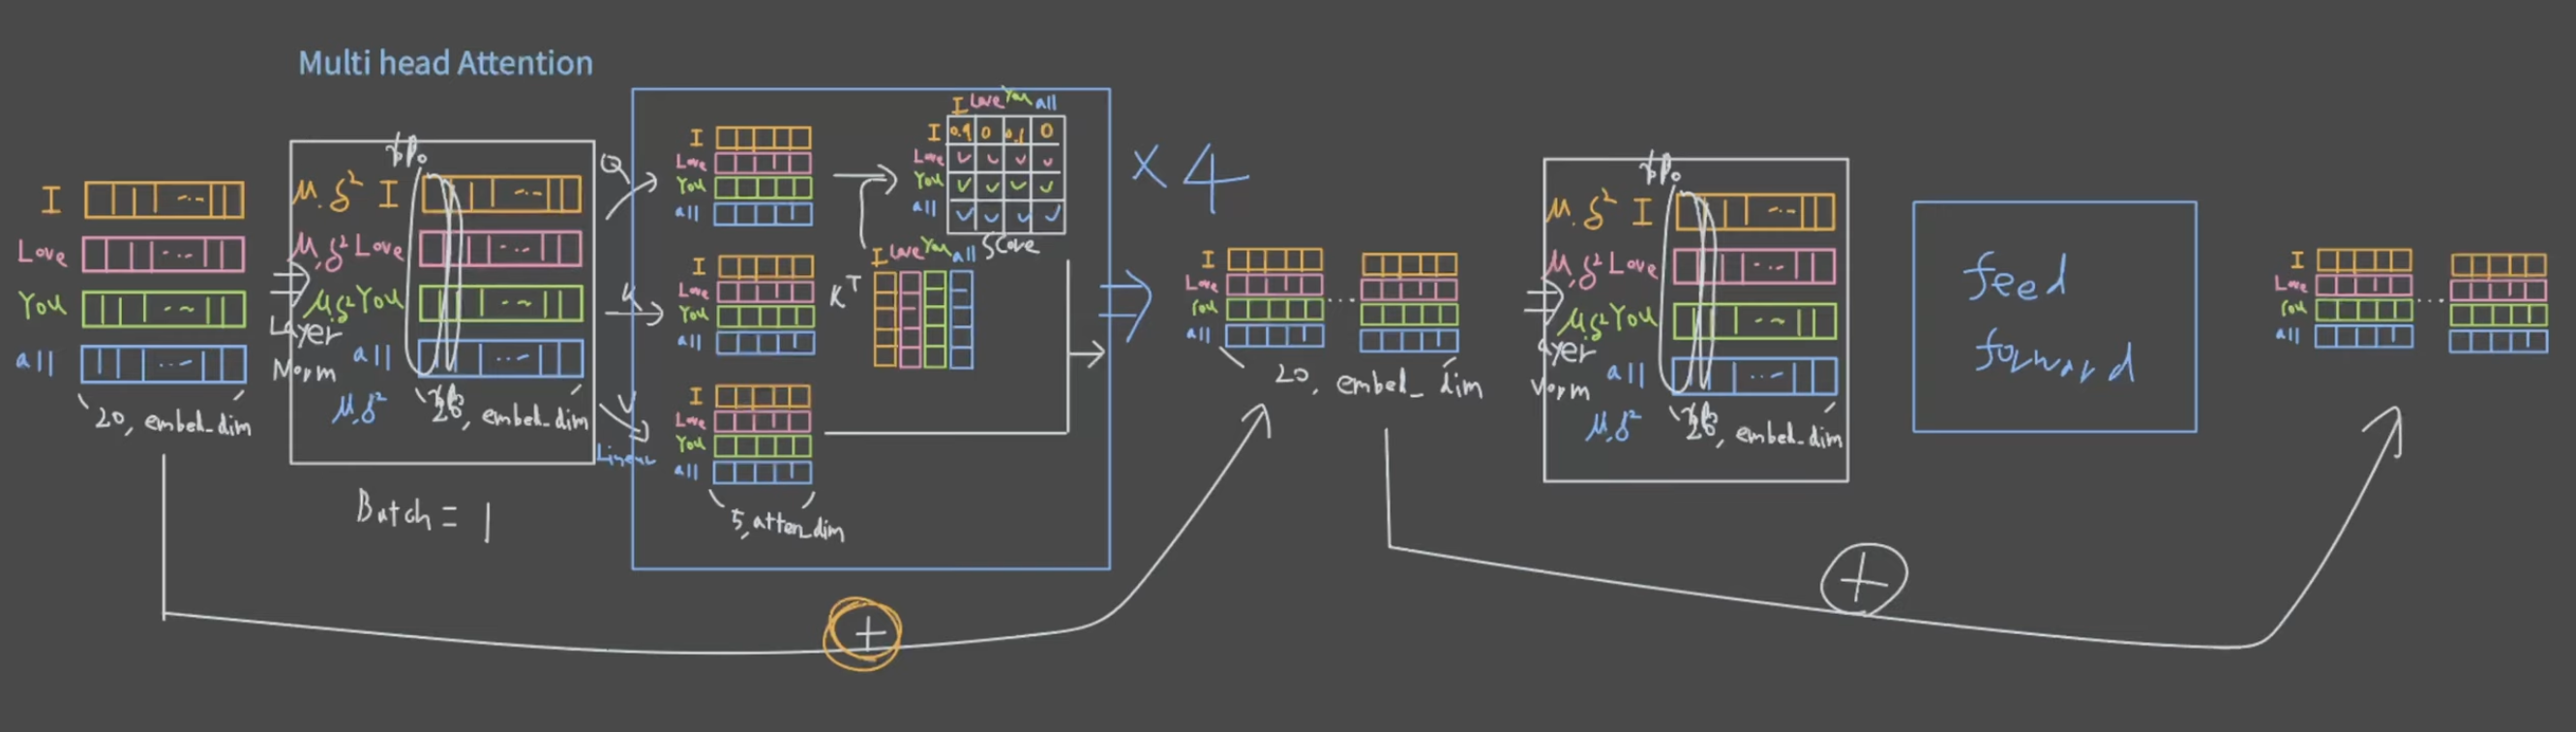 Multi head Attention
I
Love
You
all
20, embed_dim
Layer
Norm
μ.δ² I
μ,δ² Love
μ,δ² You
all
μ,δ²
, embed_dim
Batch = 1
Q
K
V
Linear
I
Love
You
all
I
Love
You
all
I
Love
You
all
5, atten_dim
K^T
I Love You all
I Love You all
I 0.9 0 0.1 0
Love ✓ ✓ ✓ ✓
You ✓ ✓ ✓ ✓
all ✓ ✓ ✓ ✓
Score
× 4
I
Love
You
all
...
20, embed_dim
ayer
Norm
μ.δ² I
μ,δ² Love
μ,δ² You
all
μ,δ²
, embed_dim
feed
forward
I
Love
You
all
...
+
+